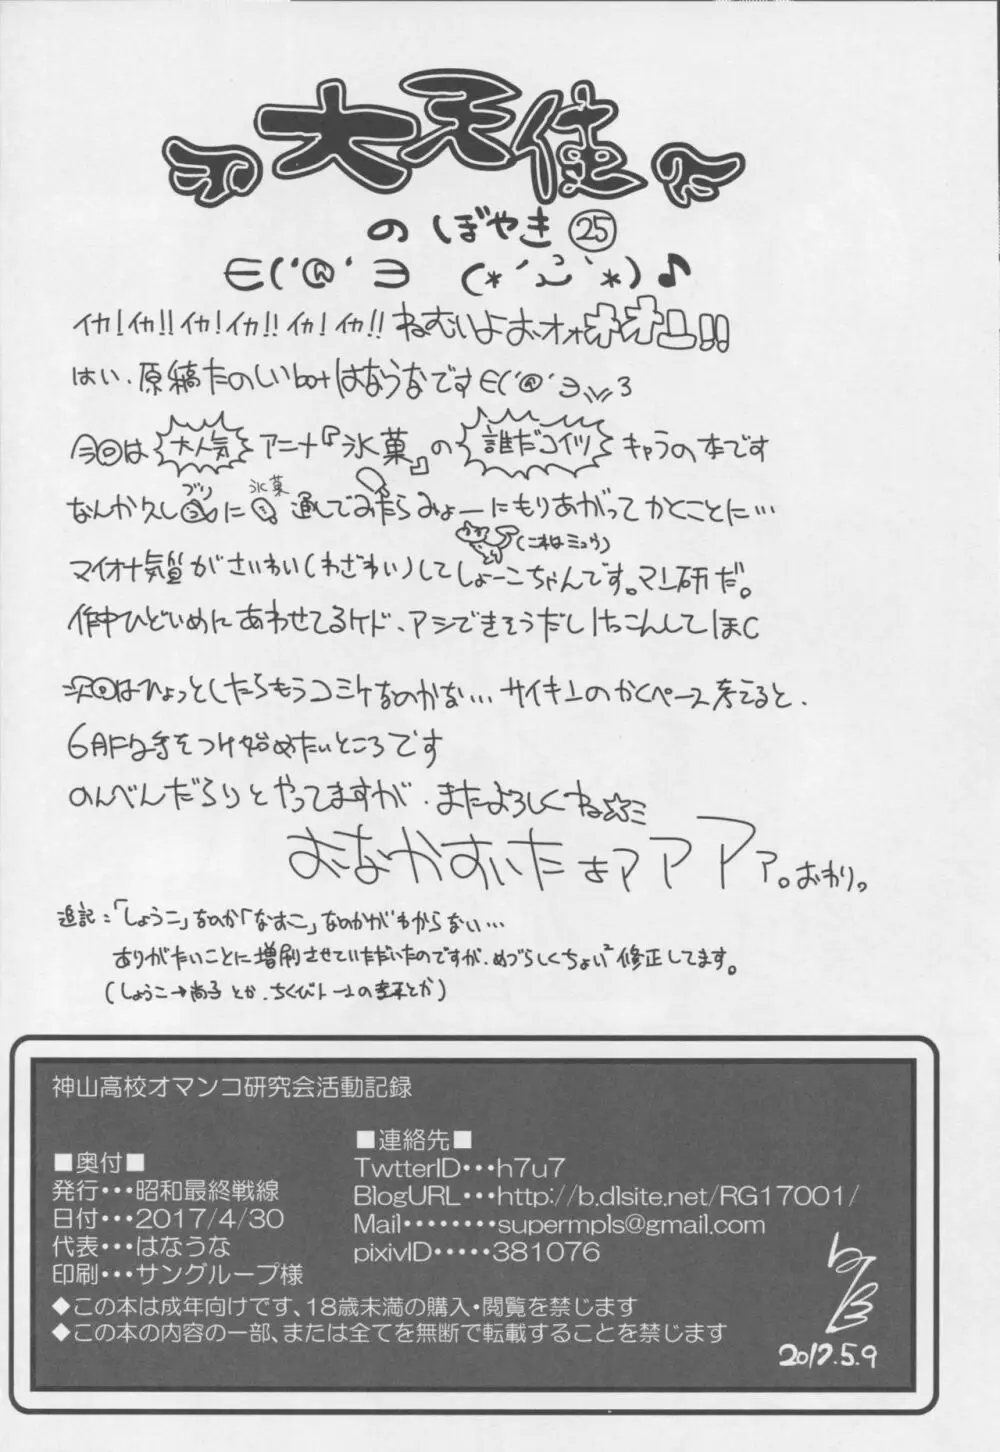 大天使
のぼやき㉕
∈('@'∋ (*´ω`*)♪
イカ!イカ!!イカ!イカ!!イカ!イカ!!ねむいよおオォオオユ!!
はい、原稿たのしいbotはなうなです∈('@'∋ 3
今回は大人気アニメ『氷菓』の誰だコイツキャラの本です
なんか久しぶりに氷菓通しでみたらみょーにもりあがってかくことに…
(これはミュウ)
マイオナ気質がさいわい(わざわい)してしょーこちゃんです。マン研だ。
作中ひどいめにあわせてるケド、アシできそうだしけっこんしてほC
次回はひょっとしたらもうコミケなのかな…サイキンのかくペース考えると、
6月下旬手をつけ始めたいところです
のんべんだらりとやってますが、またよろしくね☆ミ
おなかすいたぁアアアァ。おわり。
追記:「しょうこ」なのか「なおこ」なのかがわからない…
ありがたいことに増刷させていただいたのですが、めづらしくちょい²修正してます。
(しょうこ→尚子とか、ちくびトーンの
神山高校オマンコ研究会活動記録
■奥付■
発行・・・昭和最終戦線
日付・・・2017/4/30
代表・・・はなうな
印刷・・・サングループ様
■連絡先■
TwtterID・・・h7u7
BlogURL・・・http://b.dlsite.net/RG17001/
Mail・・・・・・・・supermpls@gmail.com
pixivID・・・・・381076
◆この本は成年向けです、18歳未満の購入・閲覧を禁じます
◆この本の内容の一部、または全てを無断で転載することを禁じます
2017.5.9